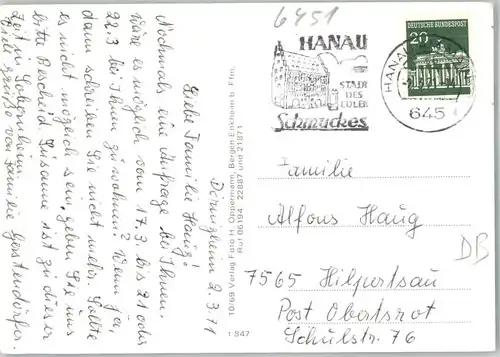 6451
HANAU
STADT
DES
EDLEN
Schmuckes
DEUTSCHE BUNDESPOST
20
HANAU
645
Dörnigheim 2.3.71
Liebe Familie Haug!
Nochmals eine Anfrage bei Ihnen.
wäre es möglich vom 17.3 bis 21 oder
22.3 bei Ihnen zu wohnen? Wenn ja
dann schreiben Sie nicht mehr. Sollte
es nicht möglich sein geben Sie uns
bitte Bescheid. Susanne ist zu dieser
Zeit in
Viele Grüße von Familie Gerstendörfer.
10/69 Verlag Foto H. Oppermann, Bergen-Enkheim b. Ffm.
Ruf 06194 22887 und 21871
1 847
Familie
Alfons Haug
7565 Hilpertsau
Post Obertsrot
Schulstr. 76
DB